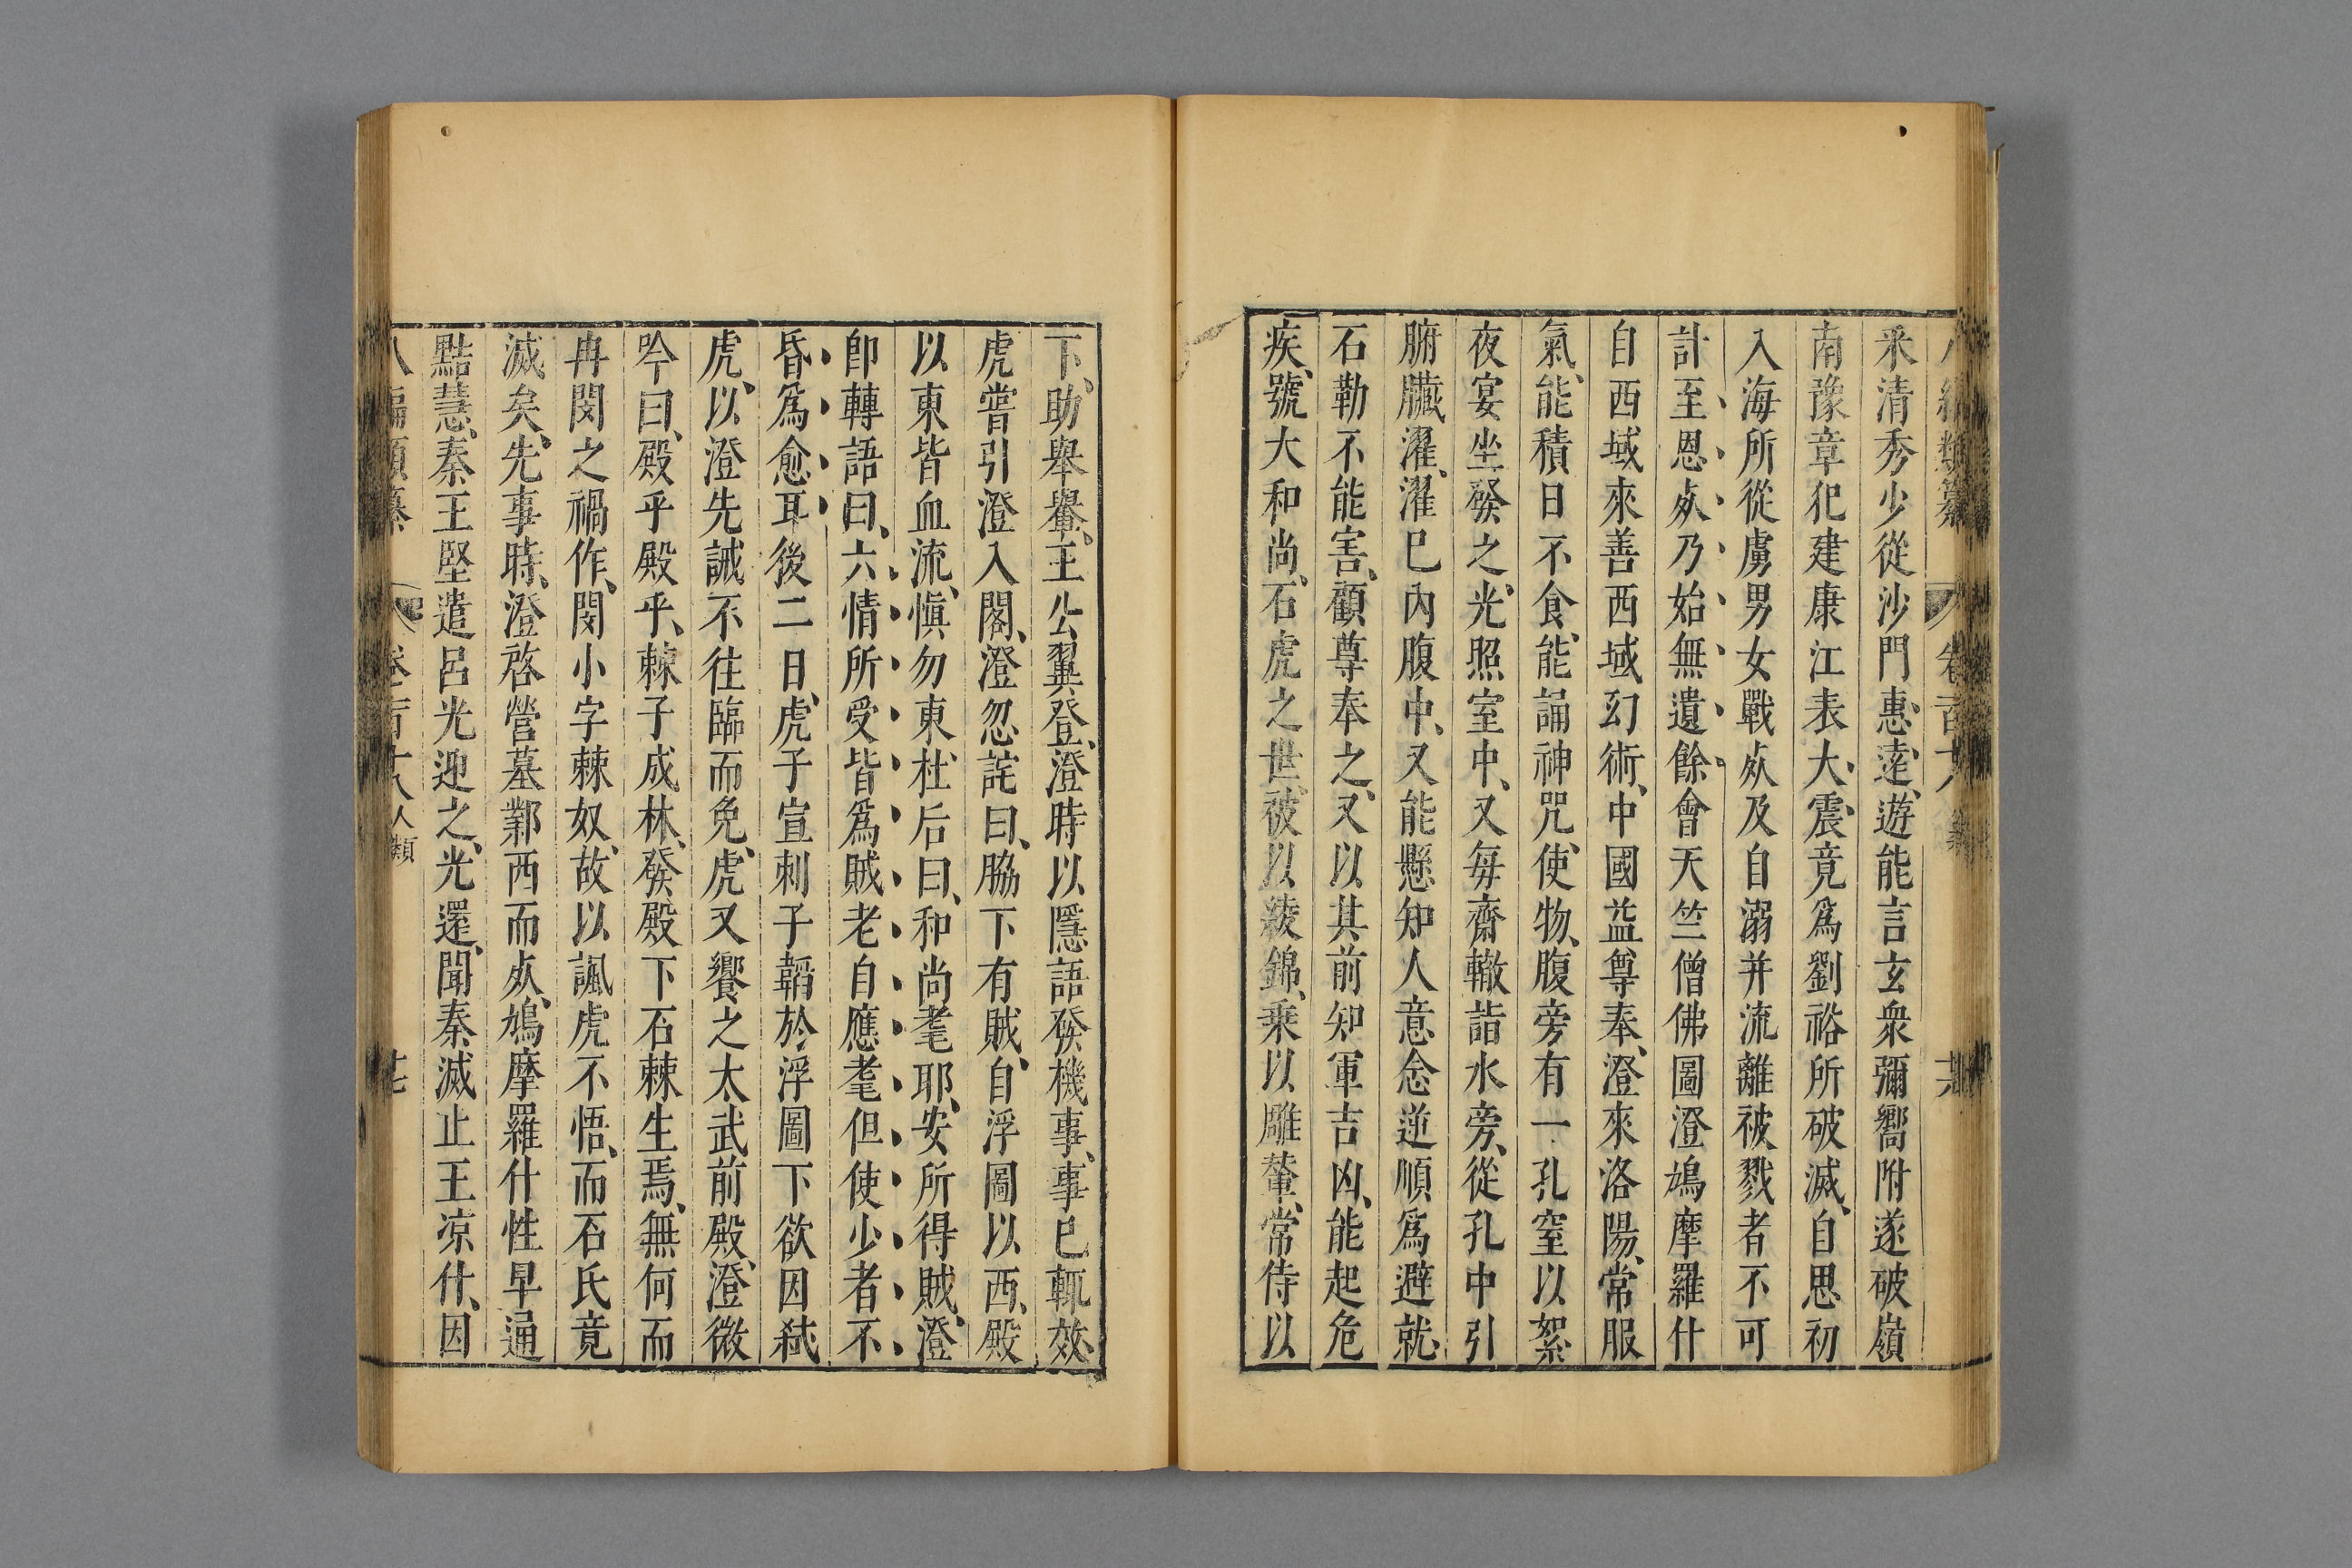 采清秀少從沙門惠遠遊能言玄衆彌嚮附遂破嶺
南豫章犯建康江表大震竟爲劉裕所破滅自思初
入海所從虜男女戰死及自溺并流離被戮者不可
計至恩死乃始無遺餘會天竺僧佛圖澄鳩摩羅什
自西域來善西域幻術中國益尊奉澄來洛陽常服
氣能積日不食能誦神咒使物腹旁有一孔窒以絮
夜宴坐發之光照室中又每齋輙詣水旁從孔中引
腑臟濯濯已內腹中又能懸知人意念逆順爲避就
石勒不能害顧尊奉之又以其前知軍吉凶能起危
疾號大和尚石虎之世被以綾錦乗以雕輦常侍以
下助舉轝王公翼登澄時以隱語發機事事已輒效
虎嘗引澄入閣澄忽詫曰脇下有賊自浮圖以西殿
以東皆血流愼勿東杜后曰和尚耄耶安所得賊澄
卽轉語曰六情所受皆爲賊老自應耄但使少者不
昏爲愈耳後二日虎子宣刺子韜於浮圖下欲因弑
虎以澄先誡不往臨而免虎又饗之太武前殿澄微
吟曰殿乎殿乎棘子成林發殿下石棘生焉無何而
冉閔之禍作閔小字棘奴故以諷虎不悟而石氏竟
滅矣先事時澄啓營墓鄴西而死鳩摩羅什性早通
黠慧秦王堅遣呂光迎之光還聞秦滅止王凉什因
八編類纂 卷一百十八 人類 廿七